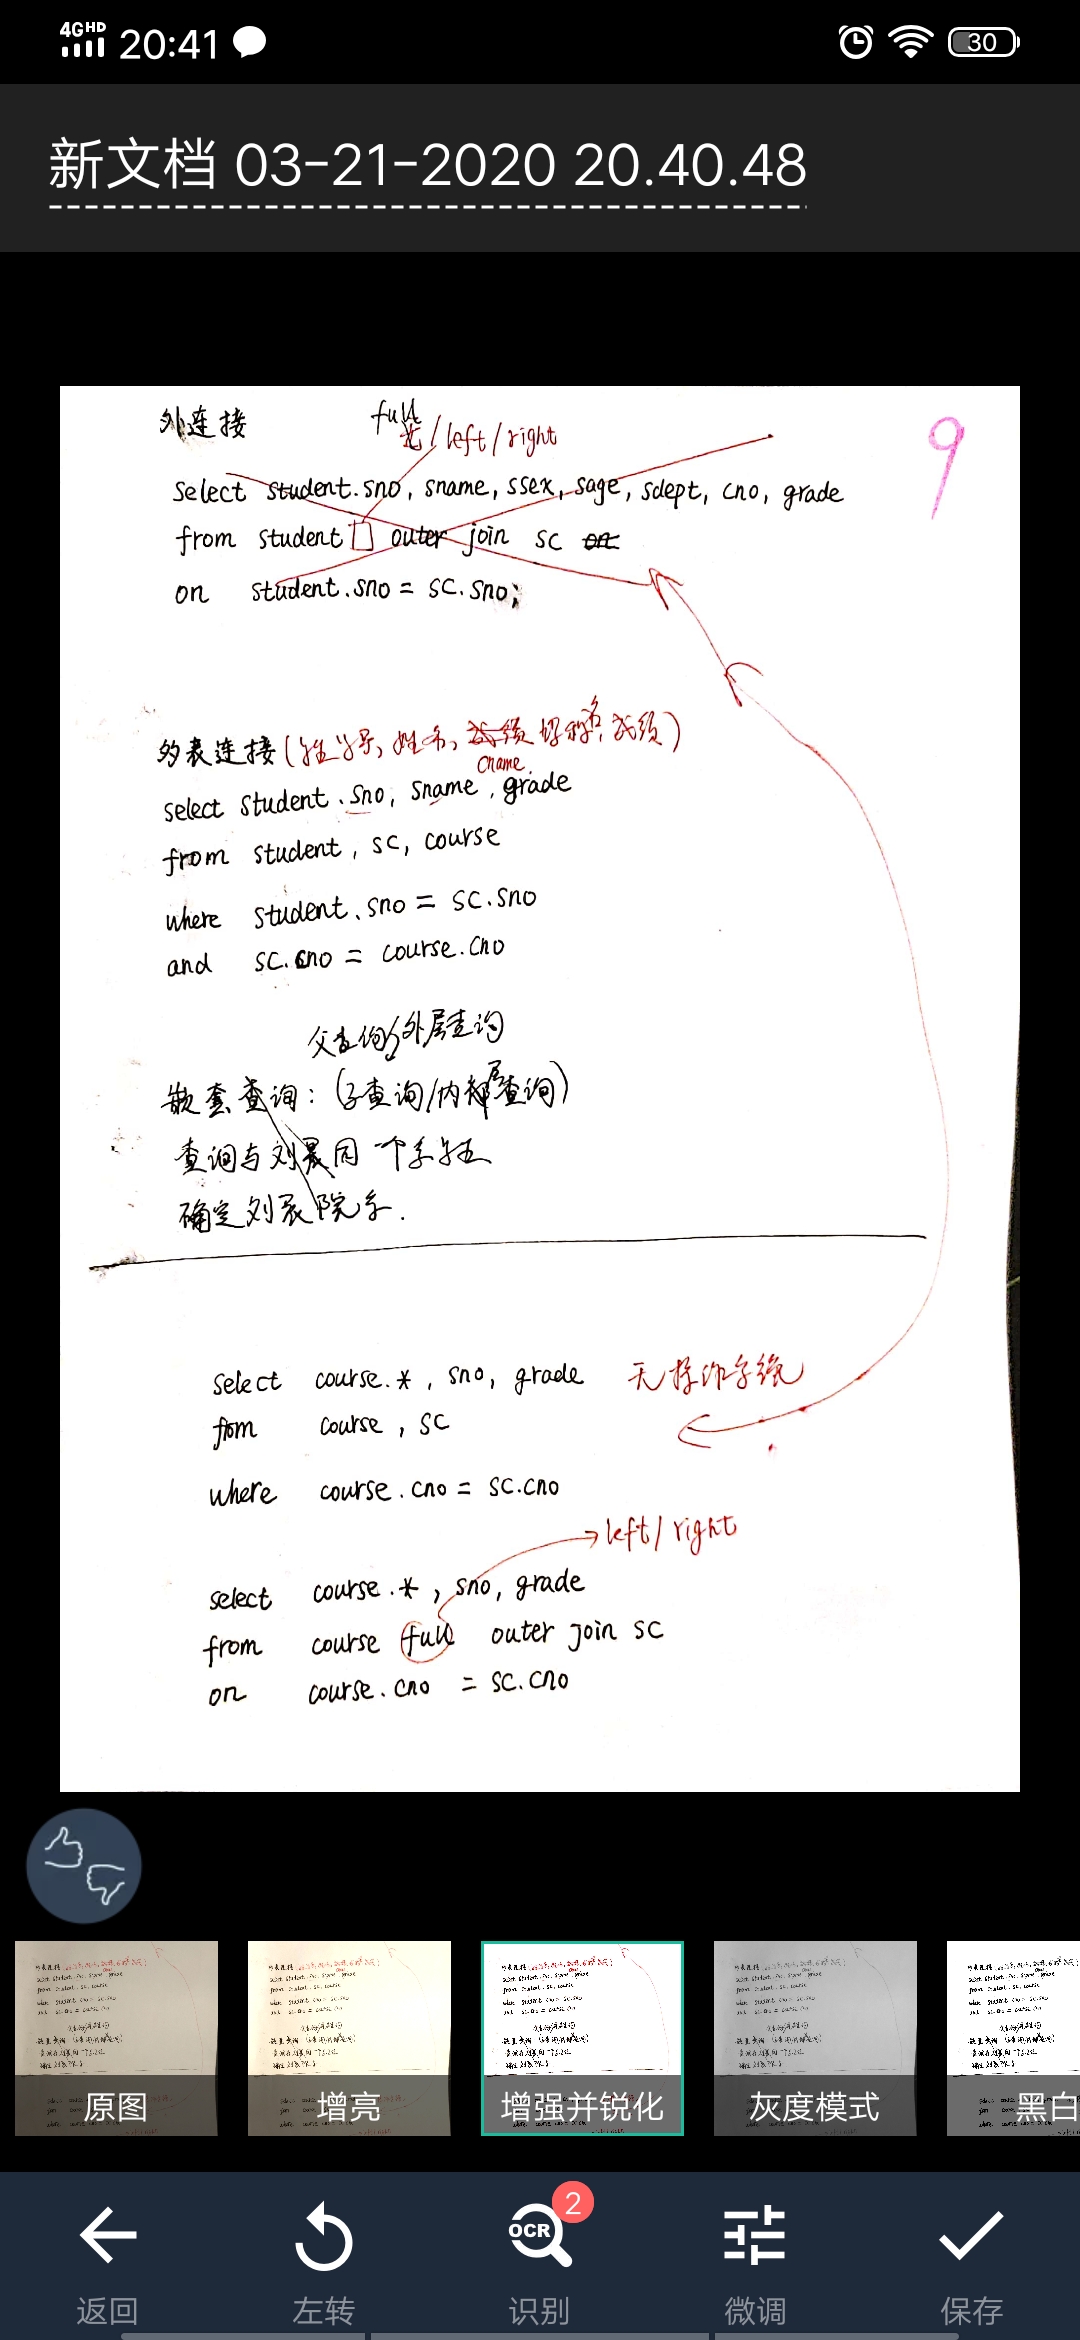 4G HD 20:41 30
新文档 03-21-2020 20.40.48
外连接 full
/left/right
9
select student.sno, sname, ssex, sage, sdept, cno, grade
from student outer join sc on
on student.sno = sc.sno;
多表连接(学号, 姓名, 成绩 名, 成绩)
cname
select student.sno, sname, grade
from student, sc, course
where student.sno = sc.sno
and sc.cno = course.cno
父查询/外层查询
嵌套查询: (子查询/内层查询)
查询与刘晨同一个系学生
确定刘晨院系.
select course.*, sno, grade 无操作系统
from course, sc
where course.cno = sc.cno
left/right
select course.*, sno, grade
from course full outer join sc
on course.cno = sc.cno
原图 增亮 增强并锐化 灰度模式 黑白
OCR 2
返回 左转 识别 微调 保存